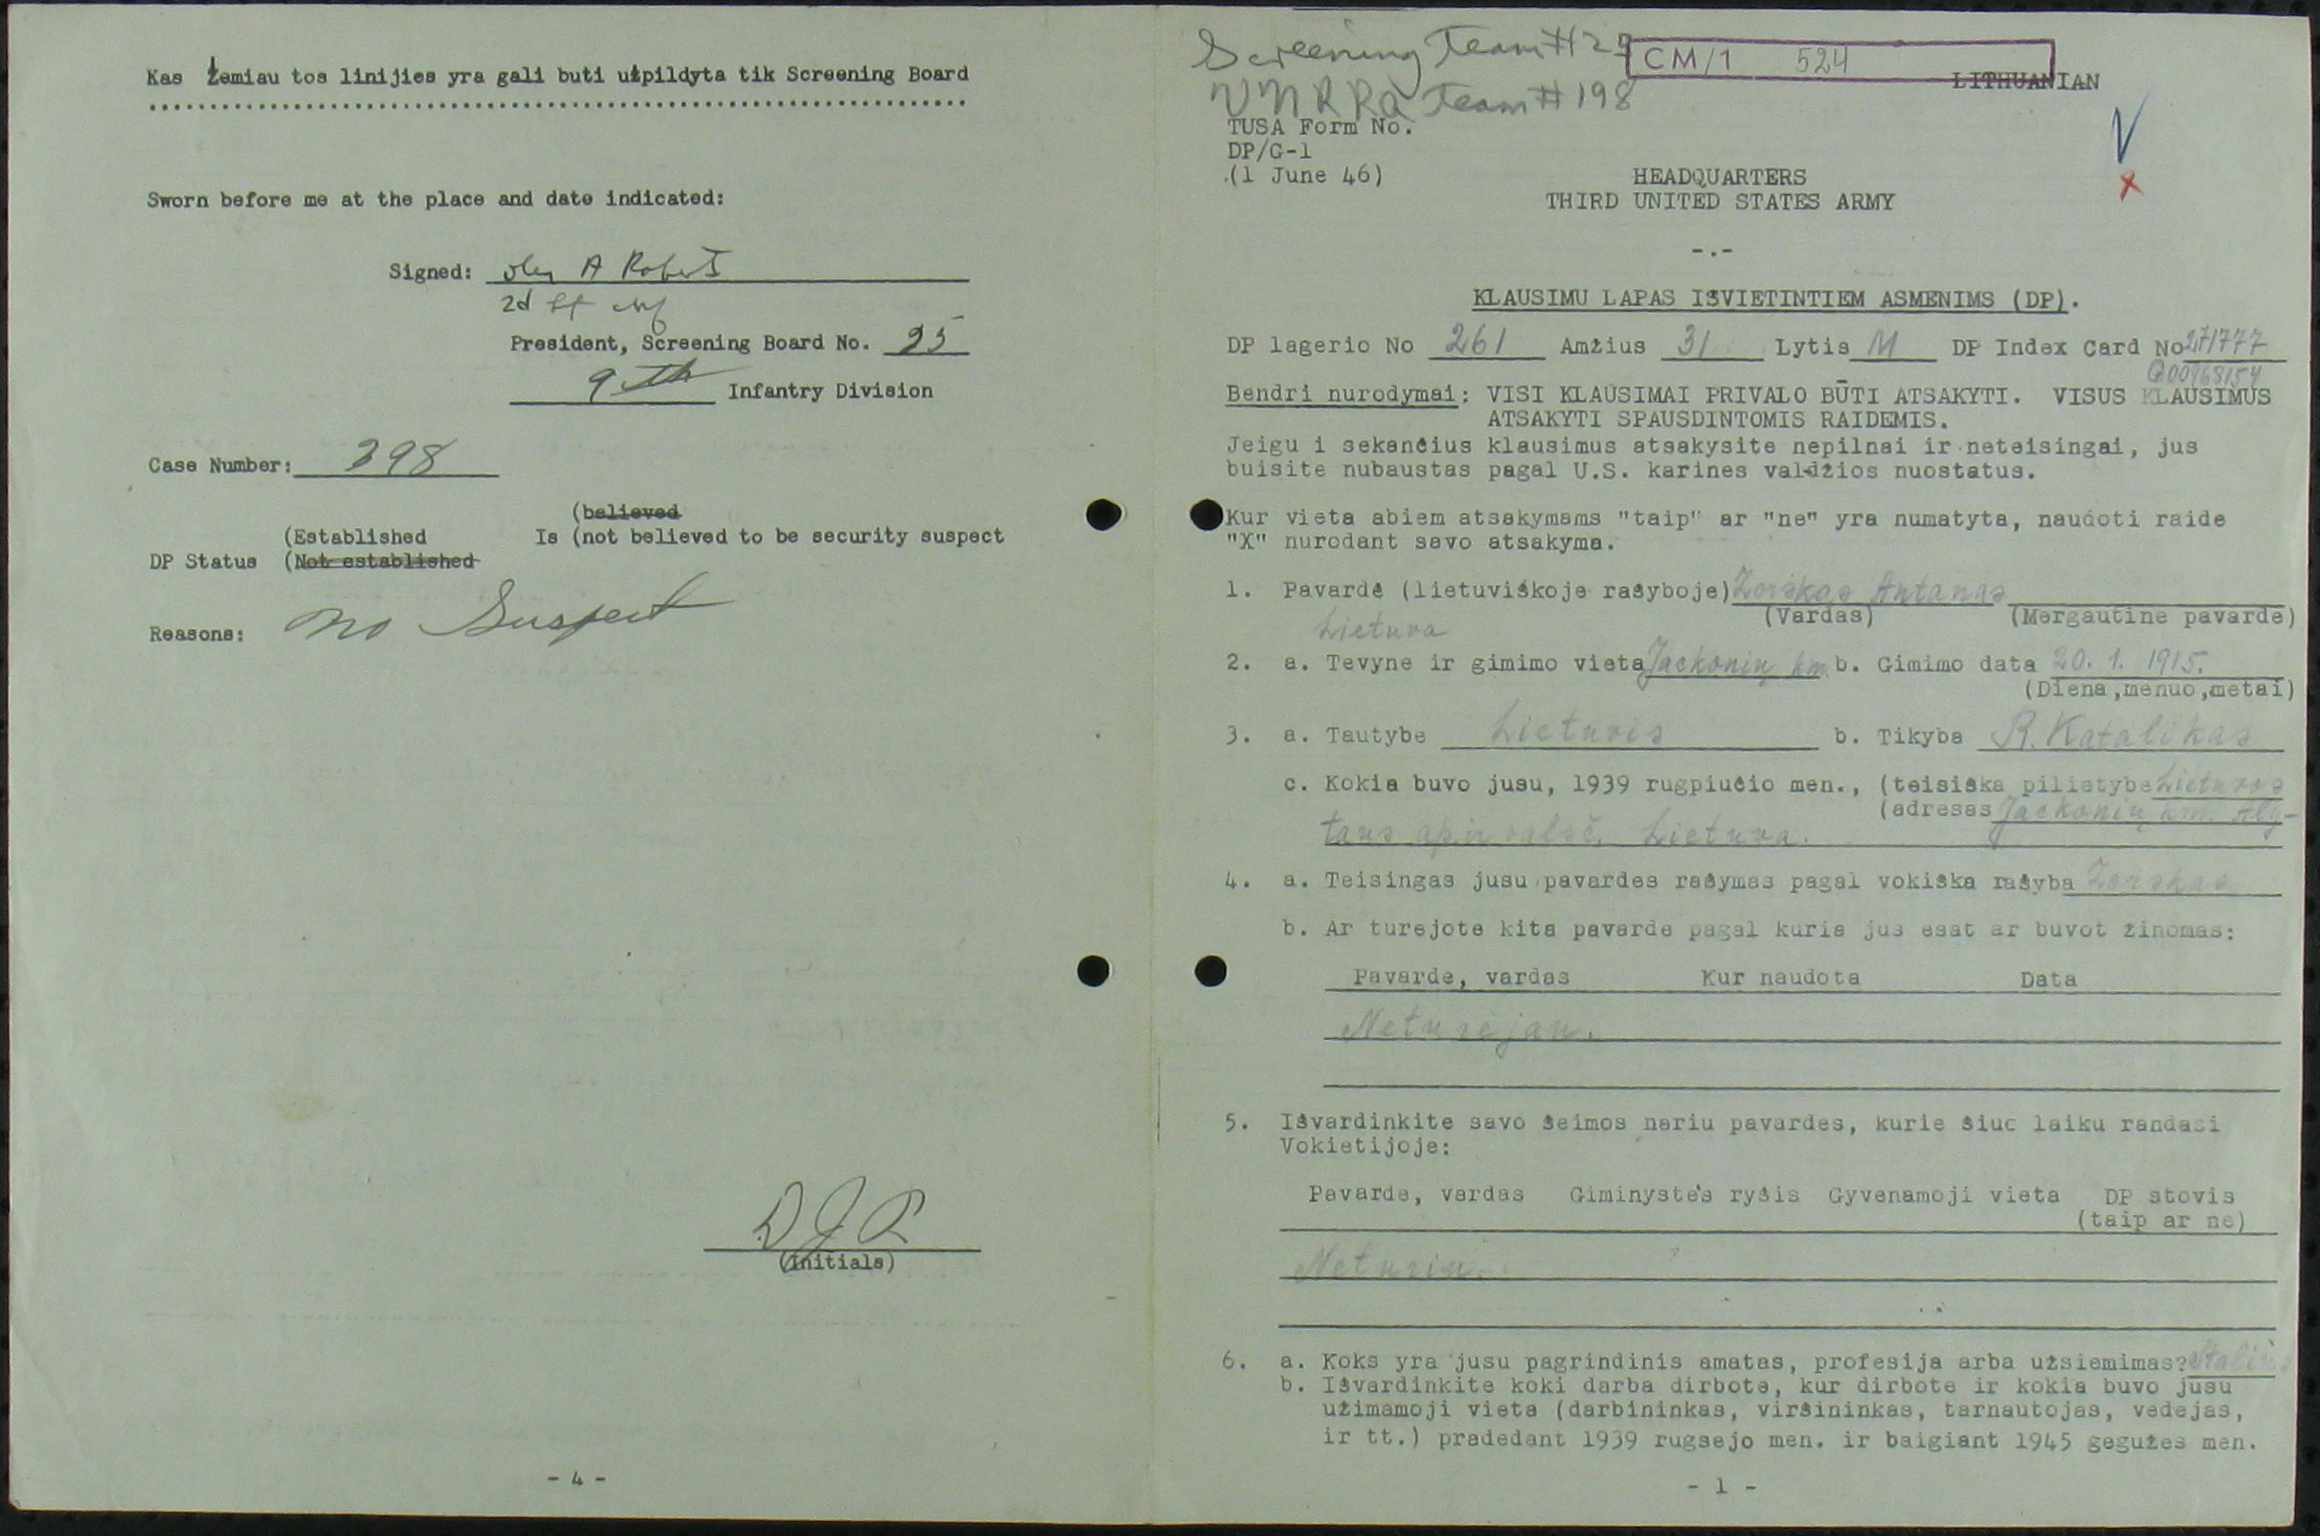 Kas Žemiau tos linijies yra gali buti užpildyta tik Screening Board
Sworn before me at the place and date indicated:
Signed: A Roberts
2d Lt Inf
President, Screening Board No. 25
9th Infantry Division
Case Number: 398
(believed
(Established Is (not believed to be security suspect
DP Status (Not established
Reasons: no Suspect
DJR
(Initials)
- 4 -
Screening Team #29
UNRRA Team #198
CM/1 524
LITHUANIAN
TUSA Form No.
DP/G-1
(1 June 46)
HEADQUARTERS
THIRD UNITED STATES ARMY
-.-
KLAUSIMU LAPAS IŠVIETINTIEM ASMENIMS (DP).
DP lagerio No 261 Amžius 31 Lytis M DP Index Card No 271777
G00968154
Bendri nurodymai: VISI KLAUSIMAI PRIVALO BŪTI ATSAKYTI. VISUS KLAUSIMUS
ATSAKYTI SPAUSDINTOMIS RAIDEMIS.
Jeigu i sekančius klausimus atsakysite nepilnai ir neteisingai, jus
buisite nubaustas pagal U.S. karines valdžios nuostatus.
Kur vieta abiem atsakymams "taip" ar "ne" yra numatyta, naudoti raide
"X" nurodant savo atsakyma.
1. Pavardė (lietuviškoje rašyboje) Zorskas Antanas
(Vardas) (Mergautine pavarde)
Lietuva
2. a. Tevyne ir gimimo vieta Jackonių km. b. Gimimo data 20. 1. 1915.
(Diena,menuo,metai)
3. a. Tautybe Lietuvis b. Tikyba R. Katalikas
c. Kokia buvo jusu, 1939 rugpiučio men., (teisiška pilietybe Lietuvos
(adresas Jackonių km. Aly-
taus ap. ir valsč. Lietuva.
4. a. Teisingas jusu pavardes rašymas pagal vokiška rašyba Zorskas
b. Ar turejote kita pavarde pagal kuria jus esat ar buvot žinomas:
Pavarde, vardas Kur naudota Data
Neturėjau.
5. Išvardinkite savo šeimos nariu pavardes, kurie šiuo laiku randasi
Vokietijoje:
Pavarde, vardas Giminystės ryšis Gyvenamoji vieta DP stovis
(taip ar ne)
Neturiu.
6. a. Koks yra jusu pagrindinis amatas, profesija arba užsiemimas?
b. Išvardinkite koki darba dirbote, kur dirbote ir kokia buvo jusu
užimamoji vieta (darbininkas, viršininkas, tarnautojas, vedejas,
ir tt.) pradedant 1939 rugsejo men. ir baigiant 1945 gegužes men.
- 1 -